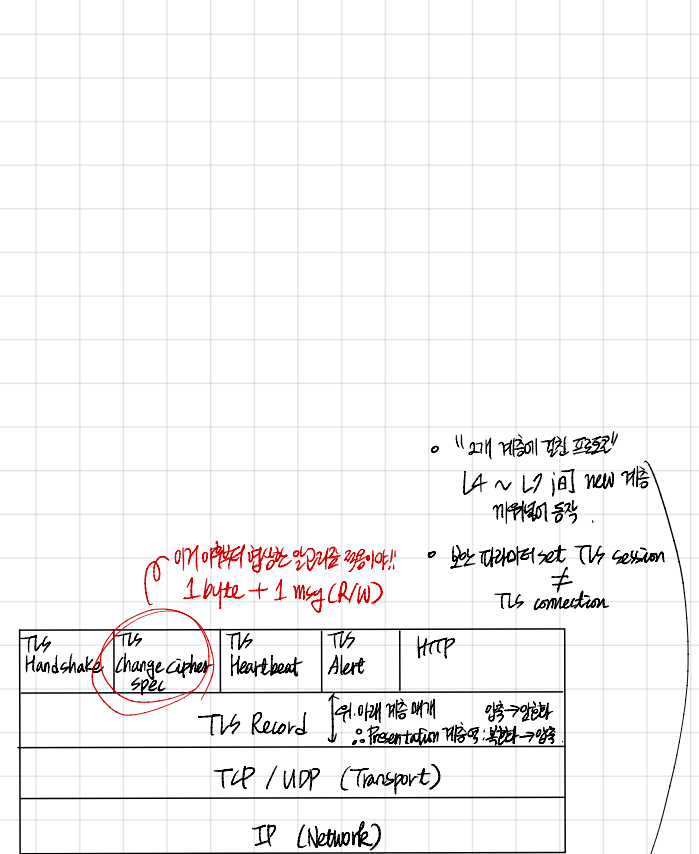 o "2개 계층에 걸친 프로토콜"
L4 ~ L7 間 new 계층
끼워넣어 동작.
o 보안 파라미터 set TLS session
≠
TLS connection
이거 이후부터 협상한 알고리즘 적용이야!!
1 byte + 1 msg (R/W)
TLS Handshake
TLS Change Cipher Spec
TLS Heartbeat
TLS Alert
HTTP
TLS Record
위.아래 계층 매개 압축→암호화
Presentation 계층 역: 복호화→압축
TCP / UDP (Transport)
IP (Network)